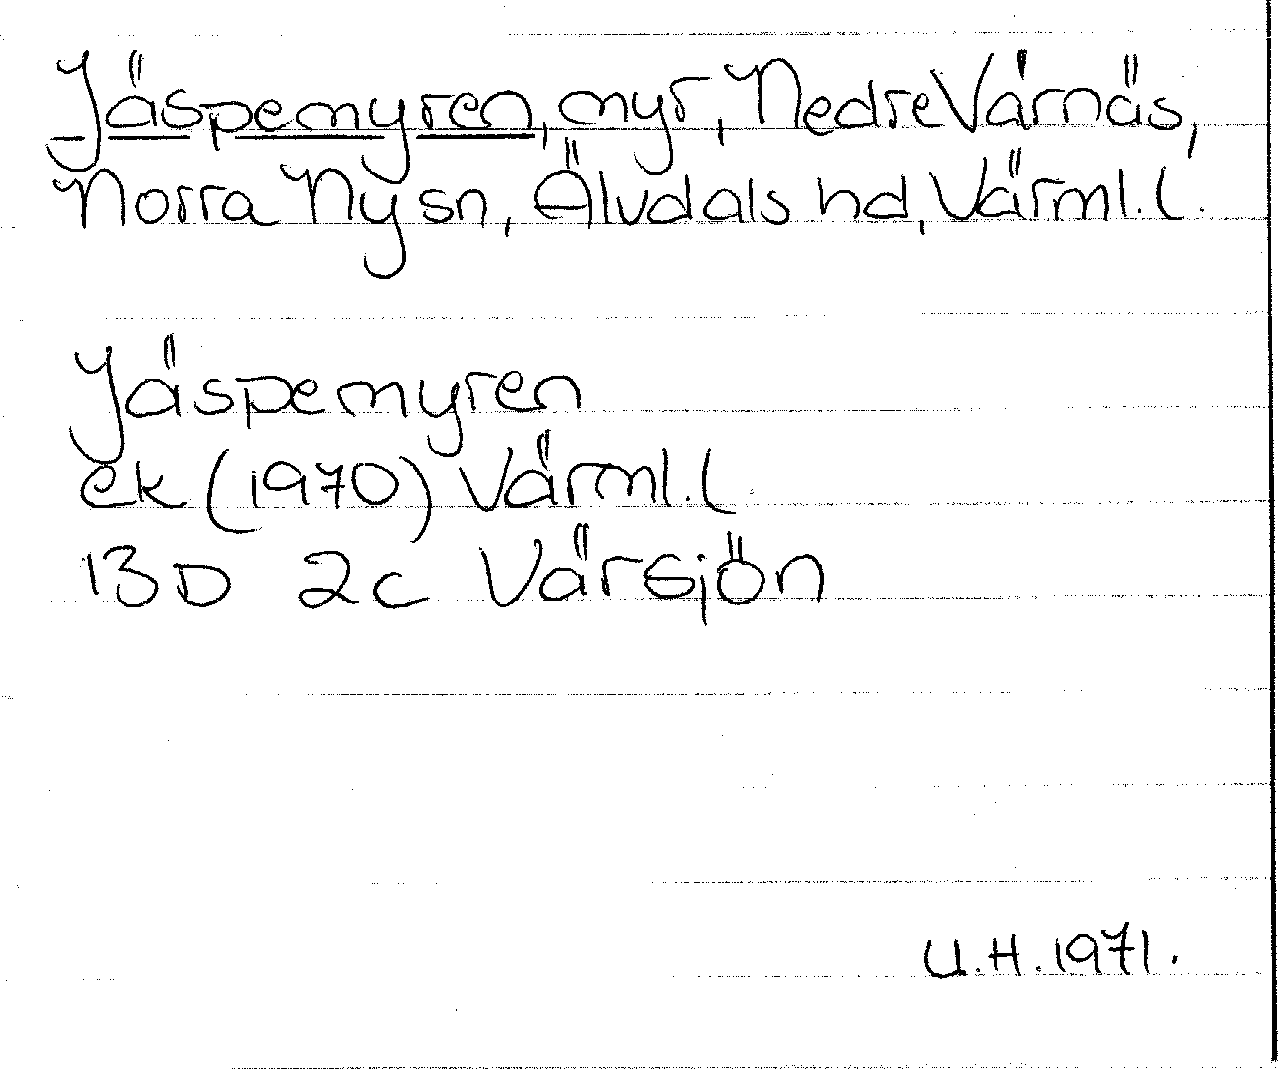 Jäspemyren, myr, Nedre Värnäs,
Norra Ny sn, Älvdals hd, Värml. l.
Jäspemyren
ek (1970) Värml. l.
13D 2c Värsjön
U.H. 1971.